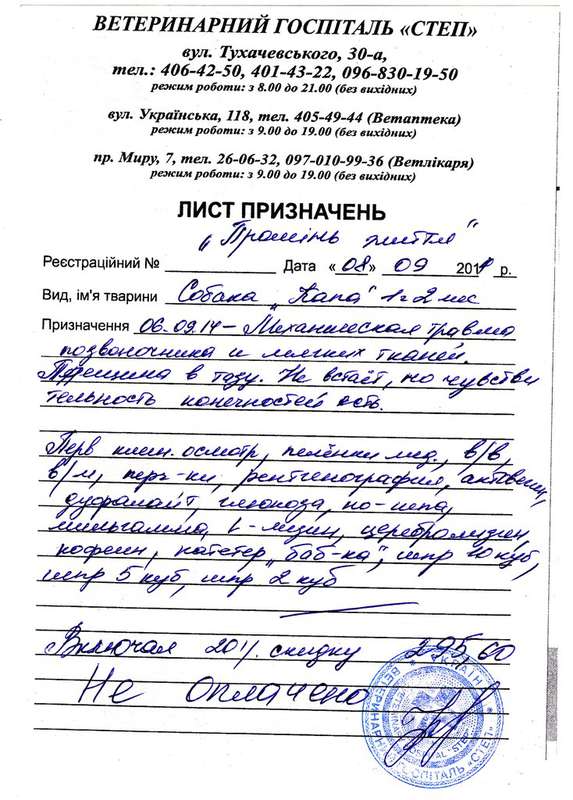 ВЕТЕРИНАРНИЙ ГОСПІТАЛЬ «СТЕП»
вул. Тухачевського, 30-а,
тел.: 406-42-50, 401-43-22, 096-830-19-50
режим роботи: з 8.00 до 21.00 (без вихідних)
вул. Українська, 118, тел. 405-49-44 (Ветаптека)
режим роботи: з 9.00 до 19.00 (без вихідних)
пр. Миру, 7, тел. 26-06-32, 097-010-99-36 (Ветлікаря)
режим роботи: з 9.00 до 19.00 (без вихідних)
ЛИСТ ПРИЗНАЧЕНЬ
„Промінь життя"
Реєстраційний № Дата «08» 09 201 р.
Вид, ім'я тварини Собака „Капа" 1г 2 мес
Призначення 06.09.14 – Механическая травма
позвоночника и мягких тканей.
в тазу. Не встаёт, но чувстви
тельность конечностей есть.
Перв клин. осмотр, пелёнки мед., в/в,
в/м, пер-ки, рентгенография,
дуфалайт, глюкоза, но-шпа,
мильгамма, L-лизин, церебролизин,
кофеин, катетер „баб-ка", шпр 10 куб,
шпр 5 куб, шпр 2 куб
Включая 20%. скидку 295,60
Не оплачено
УКРАЇНА
ВЕТЕРИНАРНИЙ ГОСПІТАЛЬ «СТЕП»